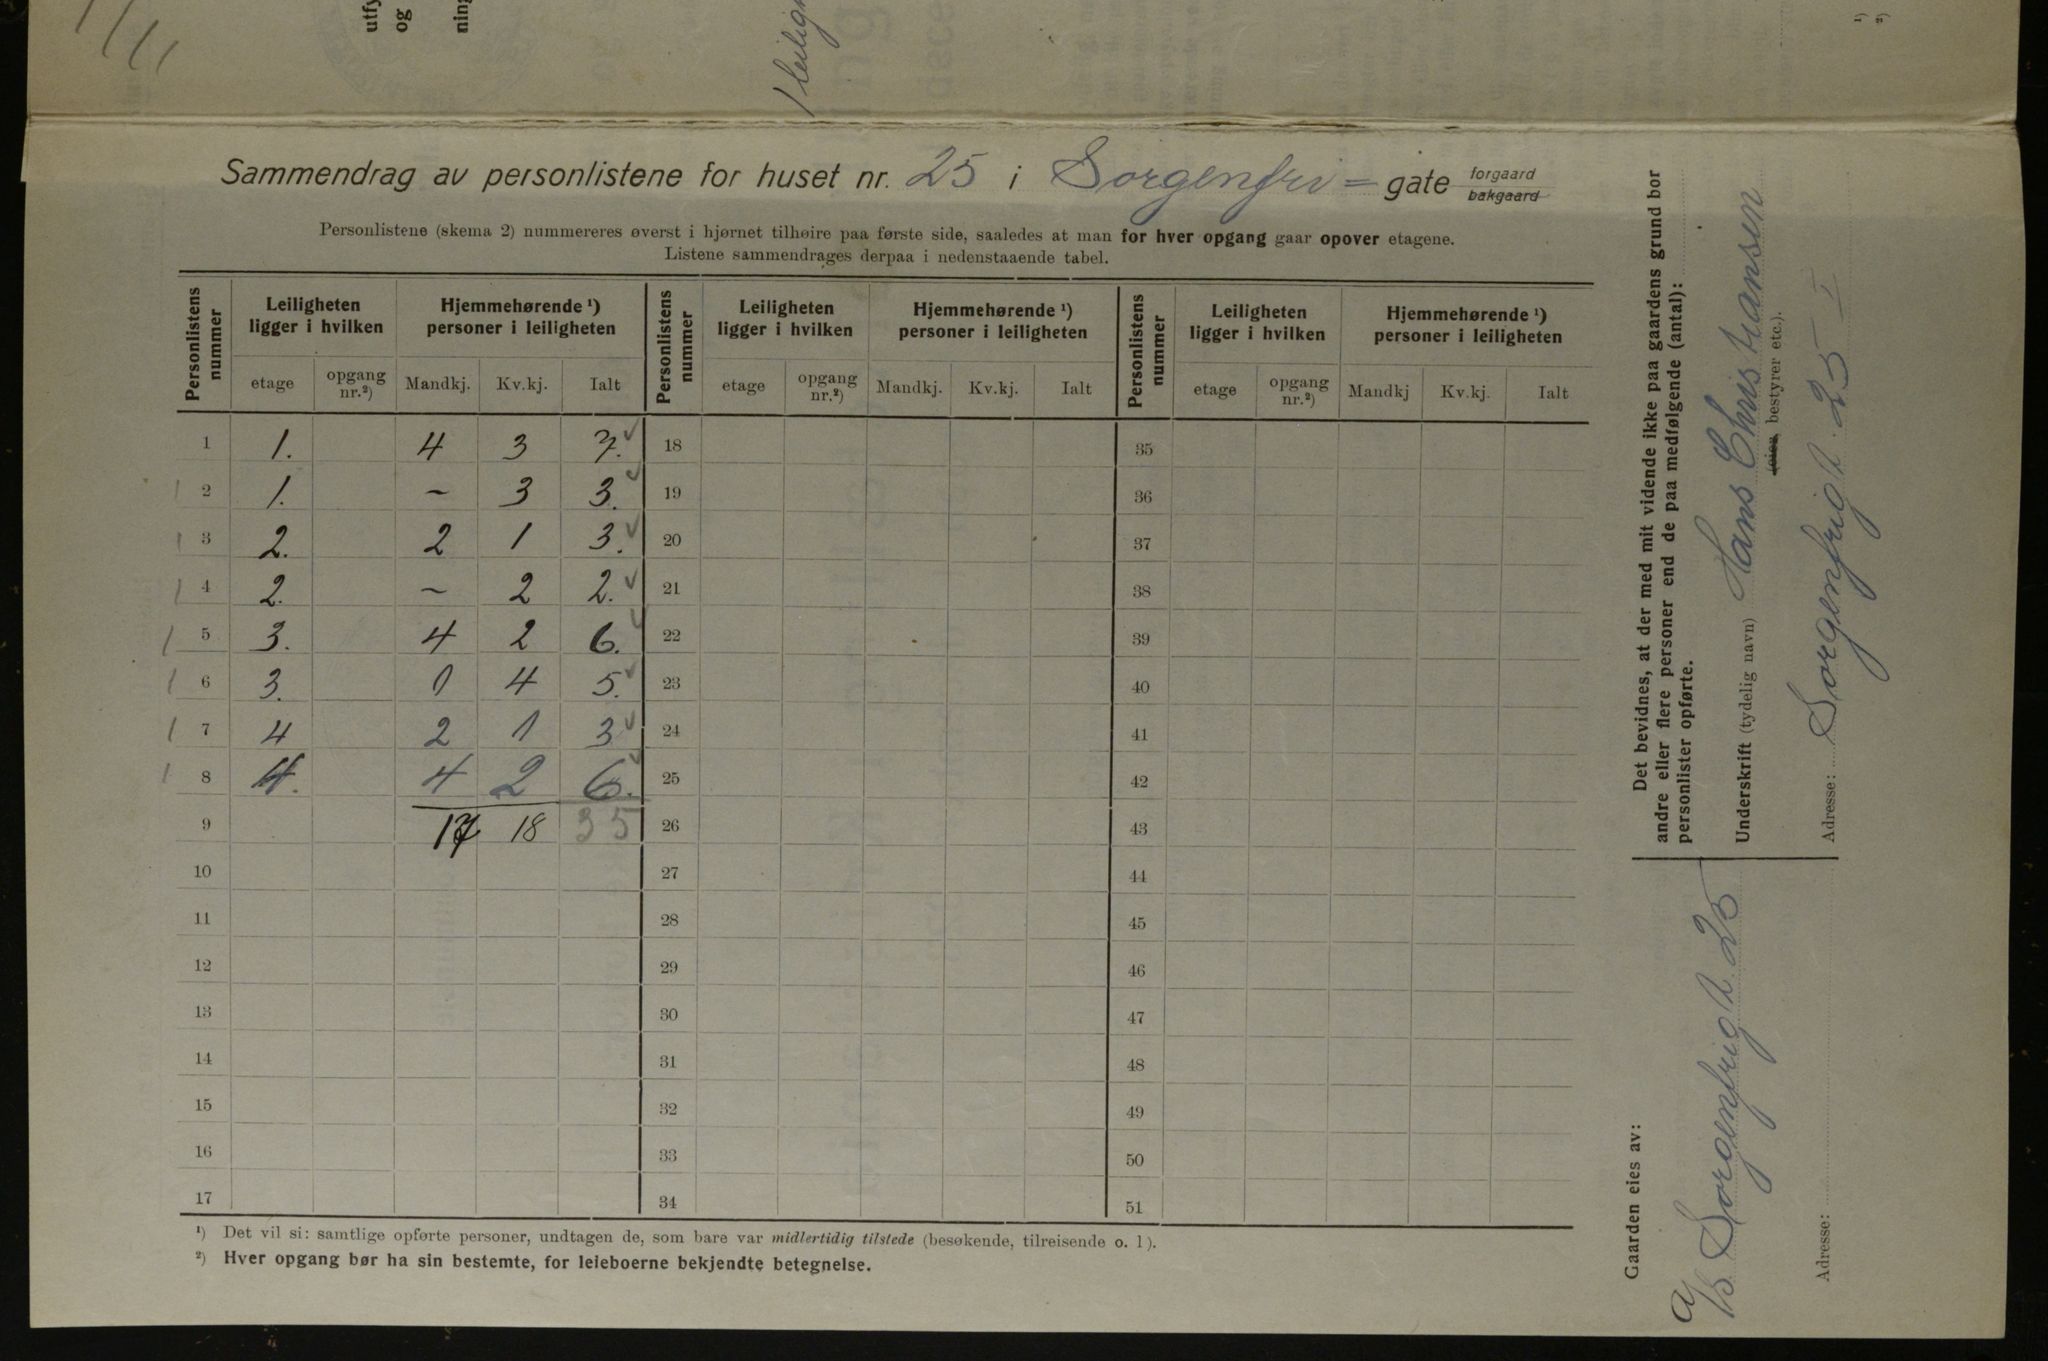 utfy
og
ning
1 leilighe
¹)
²)
Sammendrag av personlistene for huset nr. 25 i Sorgenfri= gate forgaard
bakgaard
Personlistene (skema 2) nummereres øverst i hjørnet tilhøire paa første side, saaledes at man for hver opgang gaar opover etagene.
Listene sammendrages derpaa i nedenstaaende tabel.
Personlistens nummer | Leiligheten ligger i hvilken | Hjemmehørende ¹) personer i leiligheten | Personlistens nummer | Leiligheten ligger i hvilken | Hjemmehørende ¹) personer i leiligheten | Personlistens nummer | Leiligheten ligger i hvilken | Hjemmehørende ¹) personer i leiligheten
etage | opgang nr.²) | Mandkj. | Kv.kj. | Ialt | etage | opgang nr.²) | Mandkj. | Kv.kj. | Ialt | etage | opgang nr.²) | Mandkj | Kv.kj. | Ialt
1 | 1. | 4 | 3 | 7. ✓ | 18 | 35
2 | 1. | – | 3 | 3. ✓ | 19 | 36
3 | 2. | 2 | 1 | 3. ✓ | 20 | 37
4 | 2. | – | 2 | 2. ✓ | 21 | 38
5 | 3. | 4 | 2 | 6. ✓ | 22 | 39
6 | 3. | 1 | 4 | 5. ✓ | 23 | 40
7 | 4 | 2 | 1 | 3 ✓ | 24 | 41
8 | 4. | 4 | 2 | 6. ✓ | 25 | 42
9 | 17 | 18 | 35 | 26 | 43
10 | 27 | 44
11 | 28 | 45
12 | 29 | 46
13 | 30 | 47
14 | 31 | 48
15 | 32 | 49
16 | 33 | 50
17 | 34 | 51
¹) Det vil si: samtlige opførte personer, undtagen de, som bare var midlertidig tilstede (besøkende, tilreisende o. l).
²) Hver opgang bør ha sin bestemte, for leieboerne bekjendte betegnelse.
Det bevidnes, at der med mit vidende ikke paa gaardens grund bor
andre eller flere personer end de paa medfølgende (antal):
personlister opførte.
Underskrift (tydelig navn) Hans Christiansen
(eier, bestyrer etc.).
Adresse: Sorgenfrigt. 25 I
Gaarden eies av:
A/S Sorgenfrigt. 25
Adresse: